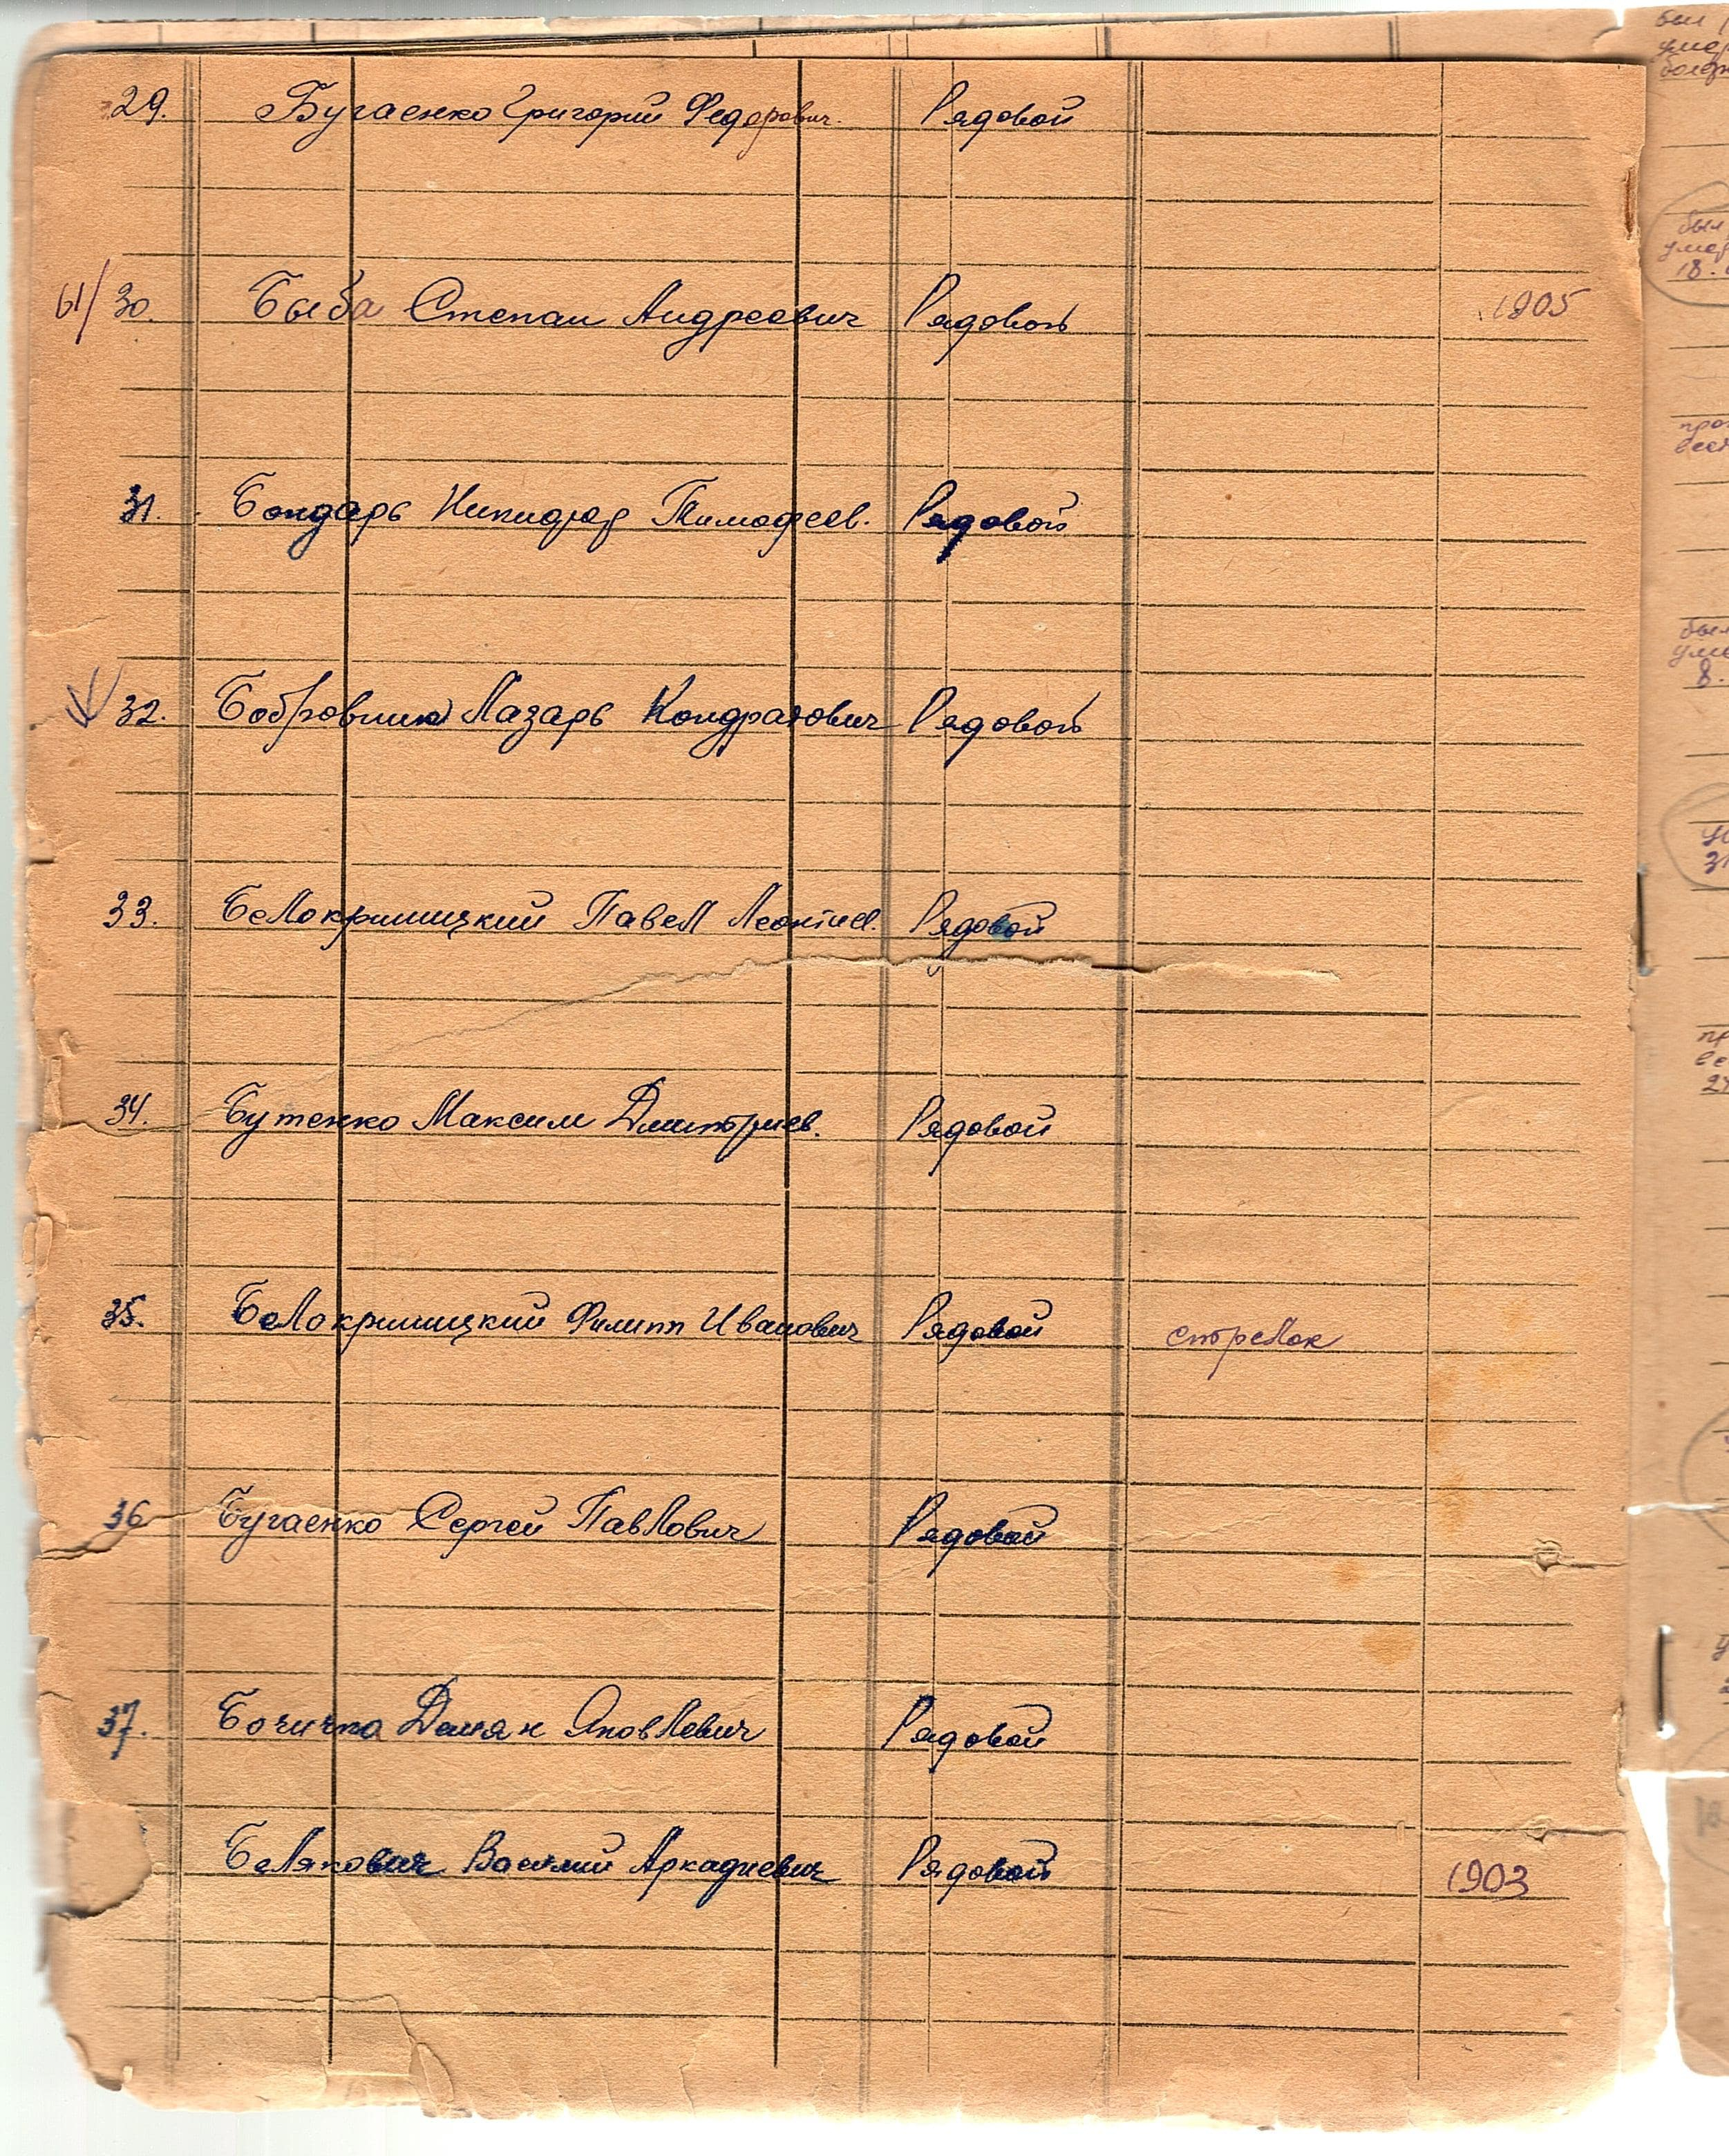 29. Бугаенко Григорий Федорович. Рядовой
61/ 30. Быба Степан Андреевич Рядовой 1905
31. Бондарь Никифор Тимофеев. Рядовой
32. Бобровник Лазарь Кондратович Рядовой
33. Белокриницкий Павел Леонтиев. Рядовой
34. Бутенко Максим Дмитриев. Рядовой
35. Белокриницкий Филипп Иванович Рядовой стрелок
36 Бугаенко Сергей Павлович Рядовой
37. Демян Яковлевич Рядовой
Белякович Василий Аркадиевич Рядовой 1903